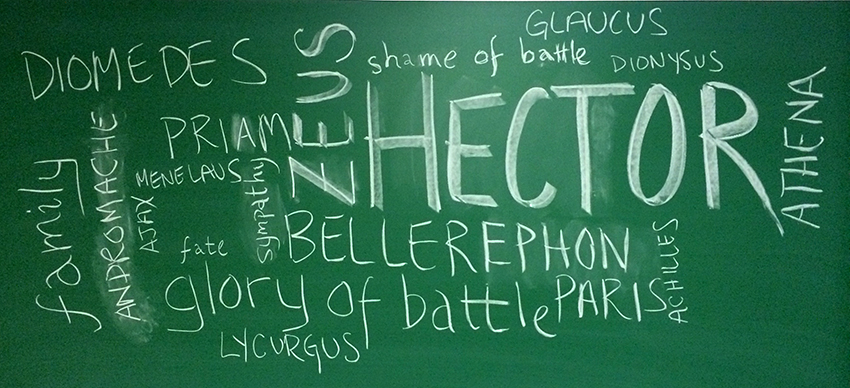 GLAUCUS
DIOMEDES
ZEUS
shame of battle
DIONYSUS
HECTOR
ATHENA
PRIAM
MENELAUS
family
ANDROMACHE
AJAX
sympathy
fate
BELLEREPHON
ACHILLES
glory of battle
PARIS
LYCURGUS